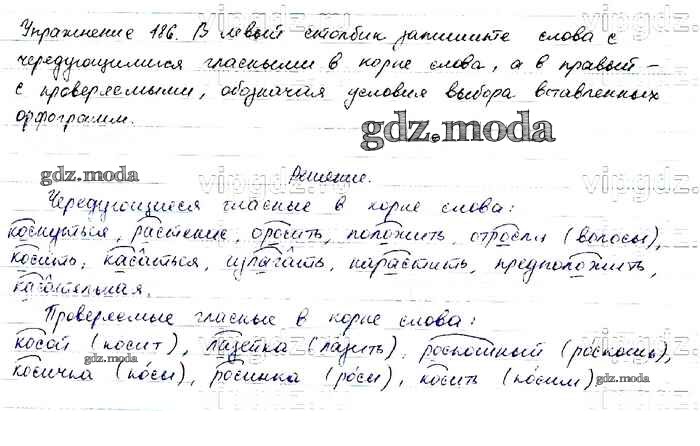 Упражнение 186. В левый столбик запишите слова с
чередующимися гласными в корне слова, а в правый –
с проверяемыми, обозначая условия выбора вставленных
орфограмм.
gdz.moda
gdz.moda
Решение.
Чередующиеся гласные в корне слова:
коснуться, растение, оросить, положить, отросли (волосы),
косить, касаться, излагать, нарастить, предположить,
касательная.
Проверяемые гласные в корне слова:
косой (косит), лазейка (лазить), роскошный (ро́скошь),
gdz.moda
косичка (ко́сы), росинка (ро́сы), косить (ко́сим)
gdz.moda